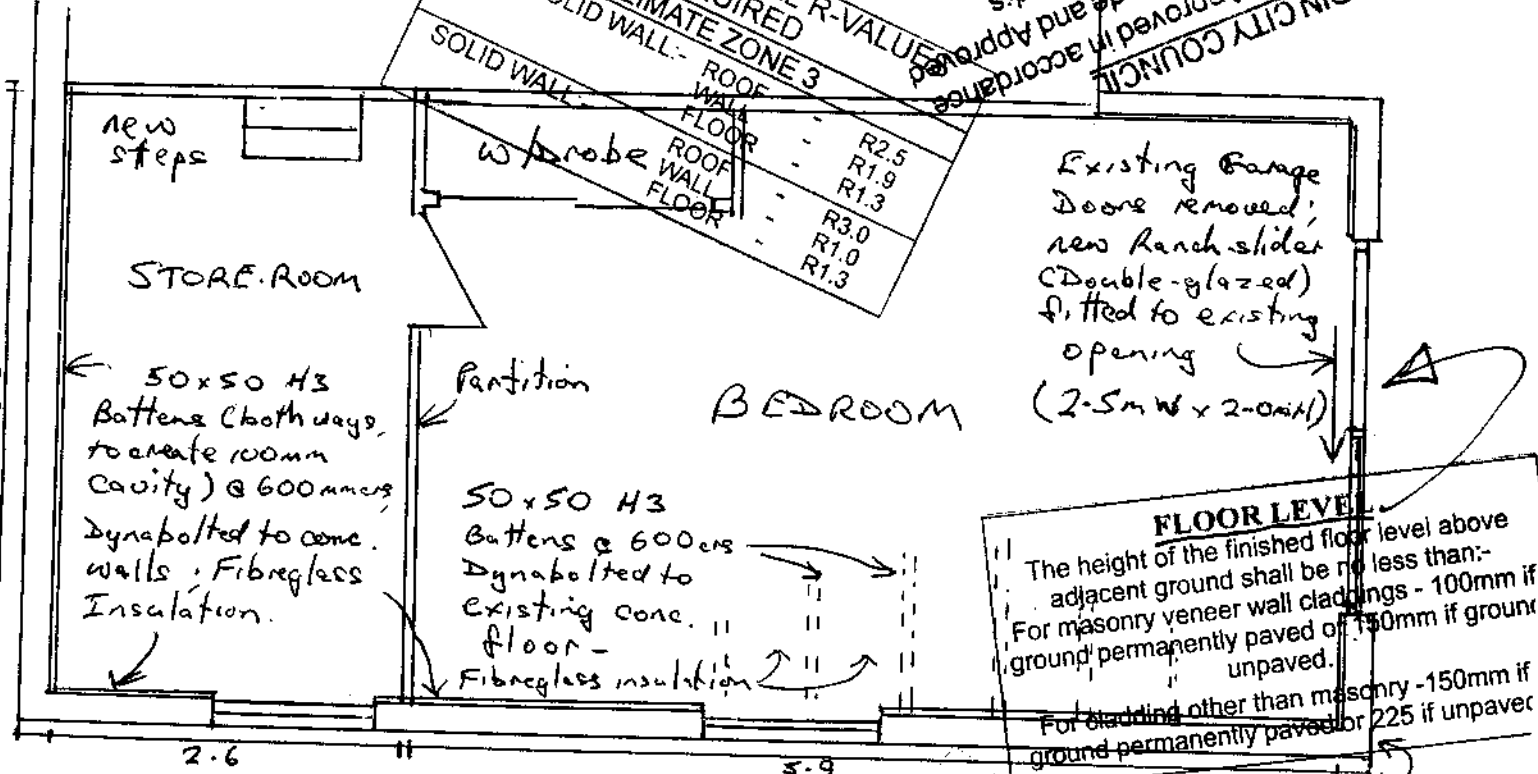 R-VALUE
UIRED
IMATE ZONE 3
SOLID WALL:-
ROOF - R2.5
WALL - R1.9
FLOOR - R1.3
SOLID WALL:-
ROOF - R3.0
WALL - R1.0
FLOOR - R1.3
CITY COUNCIL
pproved in accordance
and Approved
new
steps
w/Drobe
STORE.ROOM
Existing Garage
Doors removed;
new Ranch-slider
(Double-glazed)
fitted to existing
opening
(2.5m W x 2.0m H)
Partition
BEDROOM
50x50 H3
Battens (both ways,
to create 100mm
Cavity) @ 600mm crs
Dynabolted to conc.
walls; Fibreglass
Insulation.
50x50 H3
Battens @ 600crs
Dynabolted to
existing conc.
floor -
Fibreglass insulation
FLOOR LEVEL
The height of the finished floor level above
adjacent ground shall be no less than:-
For masonry veneer wall claddings - 100mm if
ground permanently paved or 150mm if ground
unpaved.
For cladding other than masonry -150mm if
ground permanently paved or 225 if unpaved
2.6
5.9